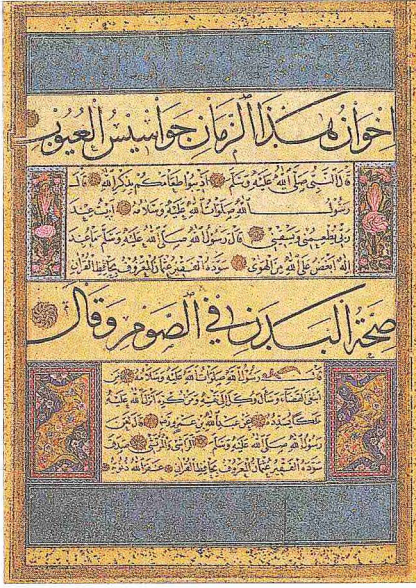 اِخْوَانُ هٰذَا الزَّمَانِ جَوَاسِيسُ الْعُيُوبِ
قَالَ النَّبِيُّ صَلَّى اللهُ عَلَيْهِ وَسَلَّمَ اَذِيبُوا طَعَامَكُمْ بِذِكْرِ اللهِ قَالَ
رَسُولُ اللهِ صَلَوَاتُ اللهِ عَلَيْهِ وَسَلَامُهُ اَبِيتُ عِنْدَ
رَبِّي يُطْعِمُنِي وَيَسْقِينِي قَالَ رَسُولُ اللهِ صَلَّى اللهُ عَلَيْهِ وَسَلَّمَ مَا عُبِدَ
اِلٰهٌ اَبْغَضُ عَلَى اللهِ مِنَ الْهَوَى سَوَّدَهُ الْفَقِيرُ عُثْمَانُ الْمَعْرُوفُ بِحَافِظِ الْقُرْآنِ
صِحَّةُ الْبَدَنِ فِي الصَّوْمِ وَقَالَ
رَسُولُ اللهِ صَلَوَاتُ اللهِ عَلَيْهِ وَسَلَامُهُ مَنِ
ابْتَغَى الْقَضَاءَ وَسَأَلَ وُكِلَ اِلَى نَفْسِهِ وَمَنْ اُكْرِهَ اَنْزَلَ اللهُ عَلَيْهِ
مَلَكًا يُسَدِّدُهُ عَنْ عَبْدِ اللهِ بْنِ عَمْرٍو قَالَ لَعَنَ
رَسُولُ اللهِ صَلَّى اللهُ عَلَيْهِ وَسَلَّمَ الرَّاشِيَ وَالْمُرْتَشِيَ
سَوَّدَهُ الْفَقِيرُ عُثْمَانُ الْمَعْرُوفُ بِحَافِظِ الْقُرْآنِ غَفَرَ اللهُ ذُنُوبَهُ